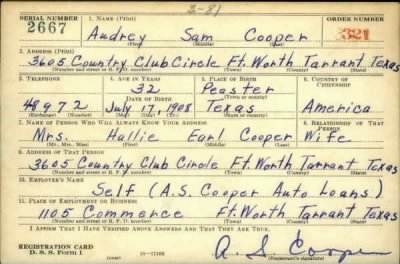 2-81
SERIAL NUMBER 1. NAME (Print) ORDER NUMBER
2667 Audrey Sam Cooper 321
(First) (Middle) (Last)
2. ADDRESS (Print)
3605 Country Club Circle Ft. Worth Tarrant Texas
(Number and street or R. F. D. number) (Town) (County) (State)
3. TELEPHONE 4. AGE IN YEARS 5. PLACE OF BIRTH 6. COUNTRY OF CITIZENSHIP
32 Peaster
DATE OF BIRTH (Town or county)
48972 July 17, 1908 Texas America
(Exchange) (Number) (Mo.) (Day) (Yr.) (State or country)
7. NAME OF PERSON WHO WILL ALWAYS KNOW YOUR ADDRESS 8. RELATIONSHIP OF THAT PERSON
Mrs. Hallie Earl Cooper Wife
(Mr., Mrs., Miss) (First) (Middle) (Last)
9. ADDRESS OF THAT PERSON
3605 Country Club Circle Ft. Worth Tarrant Texas
(Number and street or R. F. D. number) (Town) (County) (State)
10. EMPLOYER'S NAME
Self (A.S. Cooper Auto Loans)
11. PLACE OF EMPLOYMENT OR BUSINESS
1105 Commerce Ft. Worth Tarrant Texas
(Number and street or R. F. D. number) (Town) (County) (State)
I AFFIRM THAT I HAVE VERIFIED ABOVE ANSWERS AND THAT THEY ARE TRUE.
REGISTRATION CARD
D. S. S. Form 1 A. S. Cooper
(Registrant's signature)